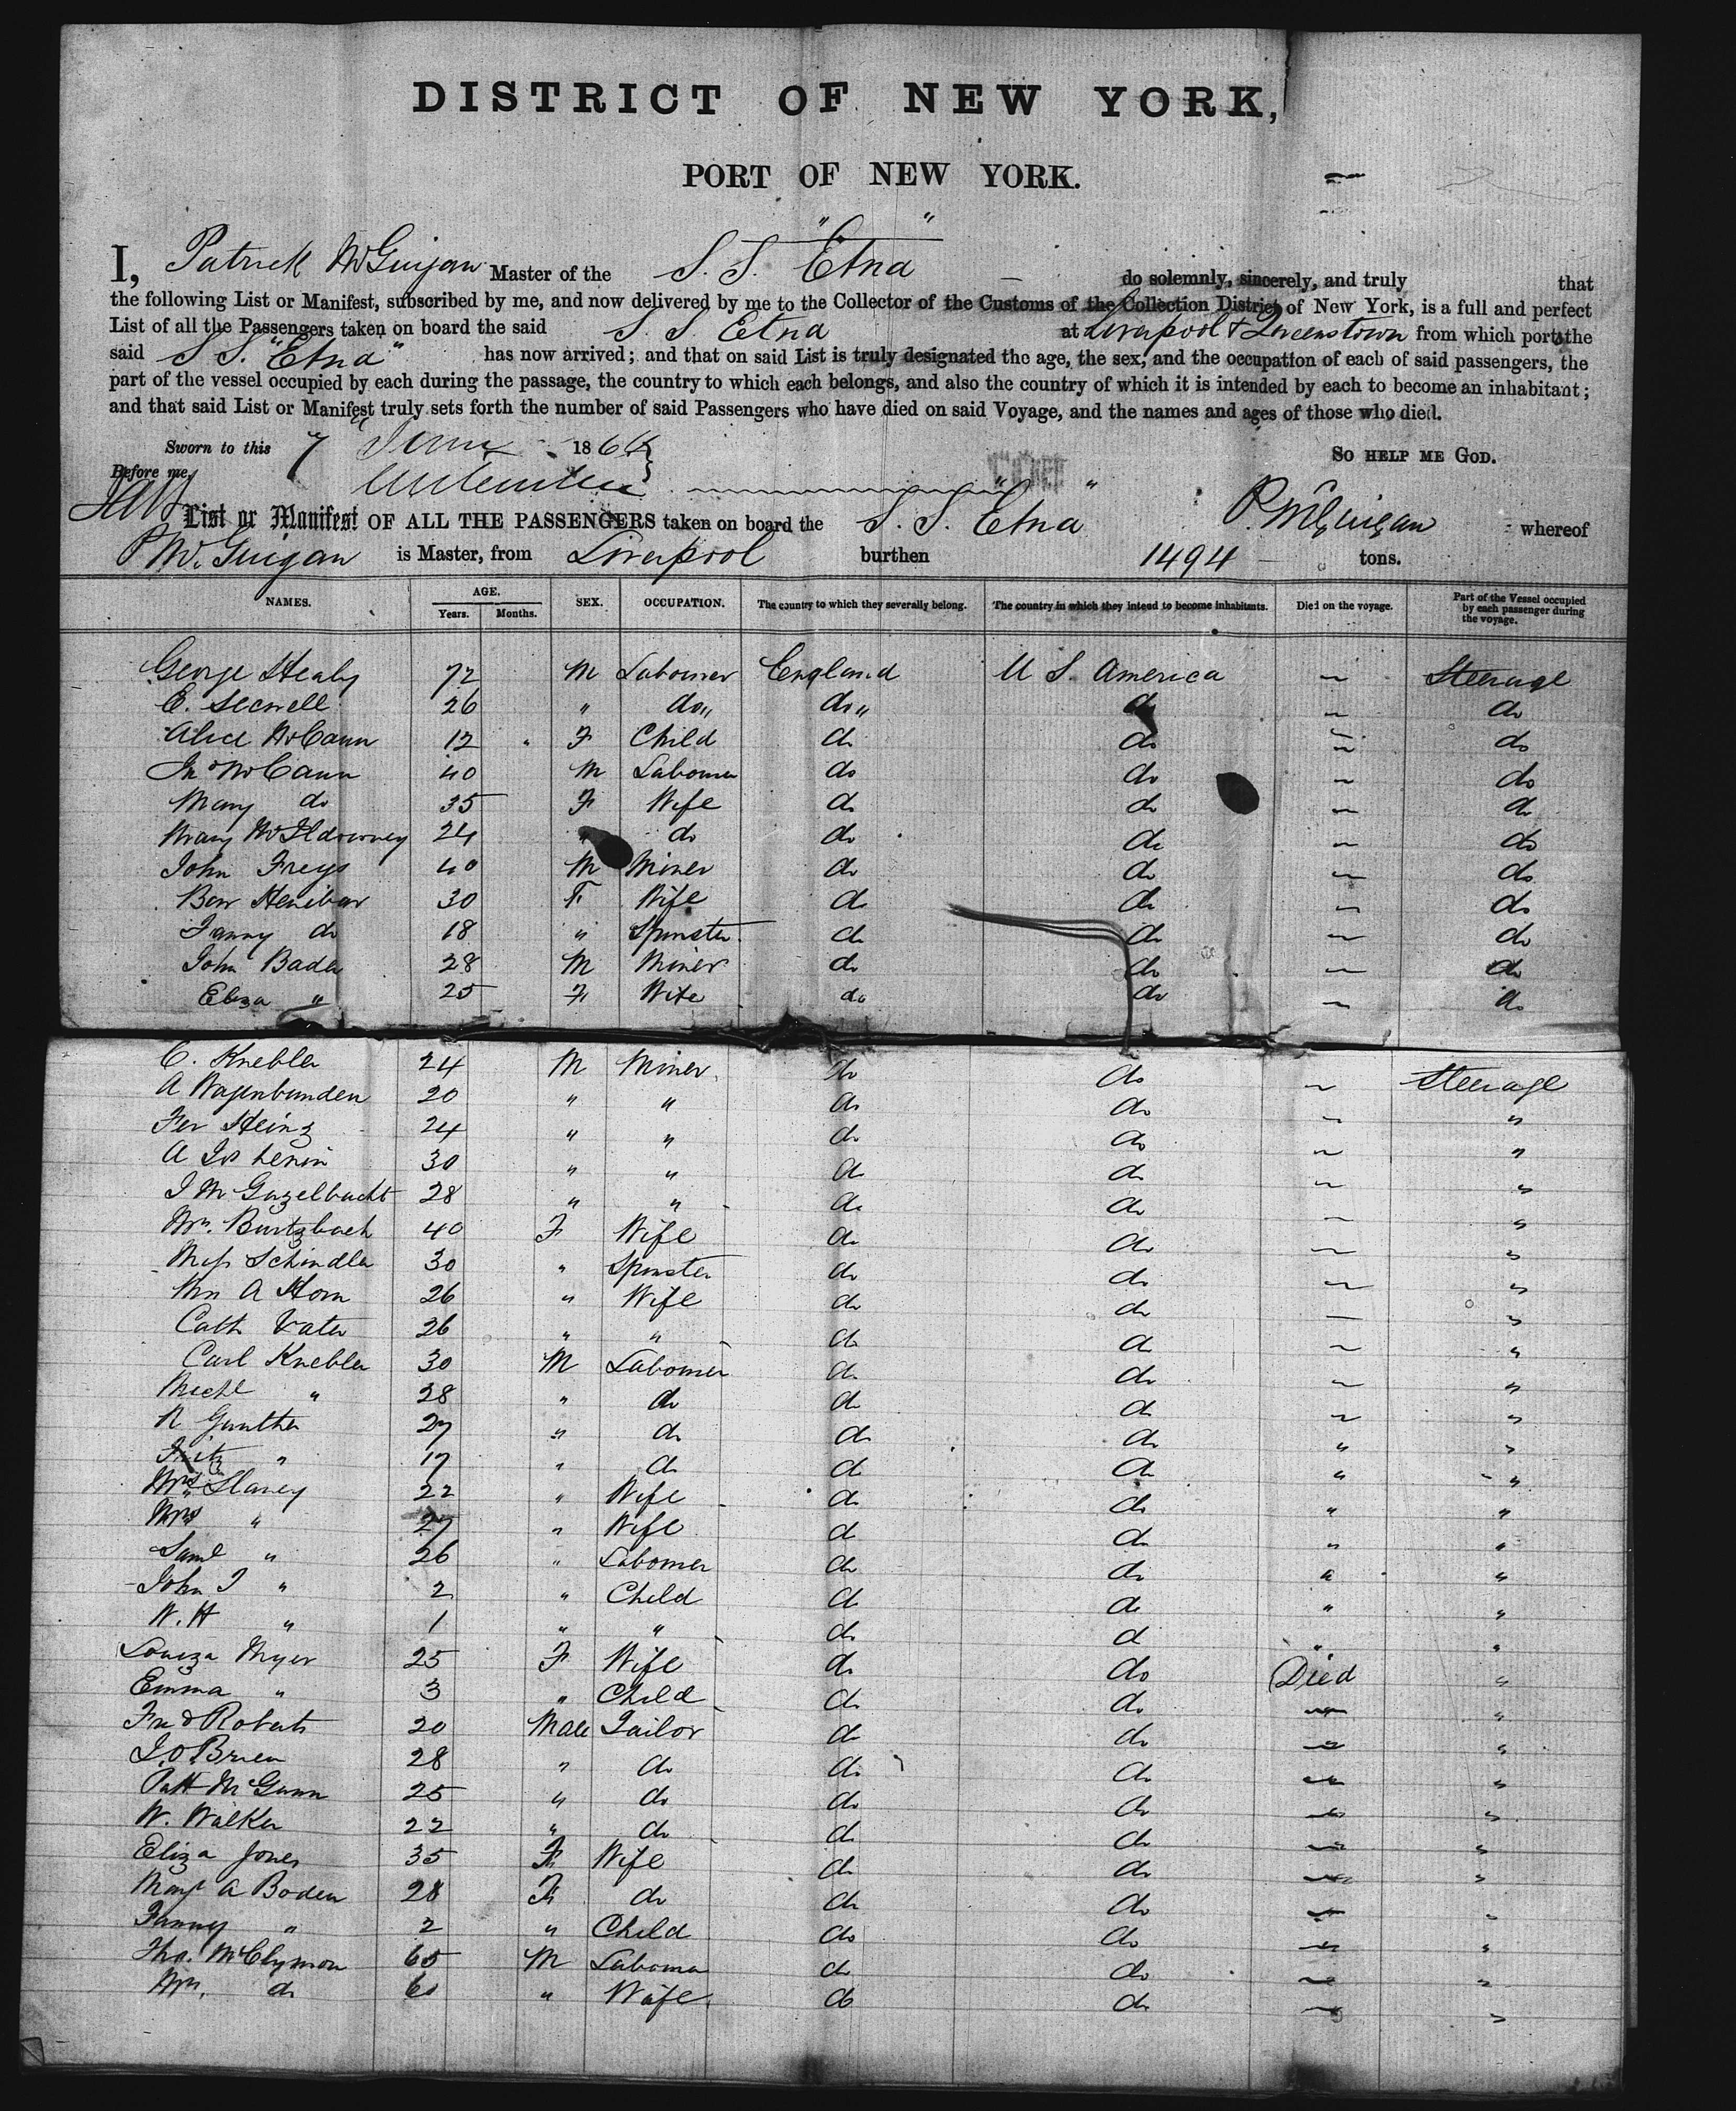 DISTRICT OF NEW YORK,
PORT OF NEW YORK.
I, Patrick McGuigan Master of the S. S. "Etna" do solemnly, sincerely, and truly that
the following List or Manifest, subscribed by me, and now delivered by me to the Collector of the Customs of the Collection District of New York, is a full and perfect
List of all the Passengers taken on board the said S. S. Etna at Liverpool & Queenstown from which port the
said S. S. "Etna" has now arrived; and that on said List is truly designated the age, the sex, and the occupation of each of said passengers, the
part of the vessel occupied by each during the passage, the country to which each belongs, and also the country of which it is intended by each to become an inhabitant;
and that said List or Manifest truly sets forth the number of said Passengers who have died on said Voyage, and the names and ages of those who died.
Sworn to this 7 June 1864 So HELP ME GOD.
Before me,
List or Manifest OF ALL THE PASSENGERS taken on board the S. S. "Etna" P. McGuigan whereof
P McGuigan is Master, from Liverpool burthen 1494 tons.
NAMES. AGE. Years. Months. SEX. OCCUPATION. The country to which they severally belong. The country in which they intend to become inhabitants. Died on the voyage. Part of the Vessel occupied by each passenger during the voyage.
George Healy 72 M Labourer England U S. America – Steerage
E. Secwell 26 " do,, do,, do – do
Alice McCann 12 " F Child do do – do
Jno McCann 40 M Labourer do do – do
Mary do 35 F Wife do do – do
Mary McIldowney 24 do do do – do
John Freys 40 M Miner do do – do
Ben Henibar 30 F. Wife do do – do
Fanny do 18 " Spinster do do – do
John Bader 28 M Miner do do – do
Eliza " 25 F Wife do do – do
C. Knebler 24 M Miner do do – Steerage
A Wagenbunden 20 " " do do – "
Fer Heinz 24 " " do do – "
A 30 " " do do – "
J M Gazelbacht 28 " " do do – "
Mrs. Burtzbach 40 F Wife do do – "
Miss Schindler 30 " Spinster do do – "
Mrs A Horn 26 " Wife do do – "
Cath Vater 26 " " do do – "
Carl Knebler 30 M Labourer do do – "
Michl " 28 " do do do – "
R Gunther 27 " do do do " "
Fritz " 17 " do do do " "
Mrs Slaney 22 " Wife do do " "
Mrs " 27 " Wife do do " "
Saml " 26 " Labourer do do " "
John J " 2 " Child do do " "
W. H " 1 " " do do " "
Louiza Myer 25 F Wife do do Died "
Emma " 3 " Child do do – "
Fred Roberts 20 Male Tailor do do – "
J. O'Brien 28 " do do do – "
Patt McGunn 25 " do do do – "
W. Walker 22 " do do do – "
Eliza Jones 35 F Wife do do – "
Mary A Boden 28 F do do do – "
Fanny " 2 " Child do do – "
Tho. McClymon 65 M Labourer do do – "
Mrs. do 60 " Wife do do – "